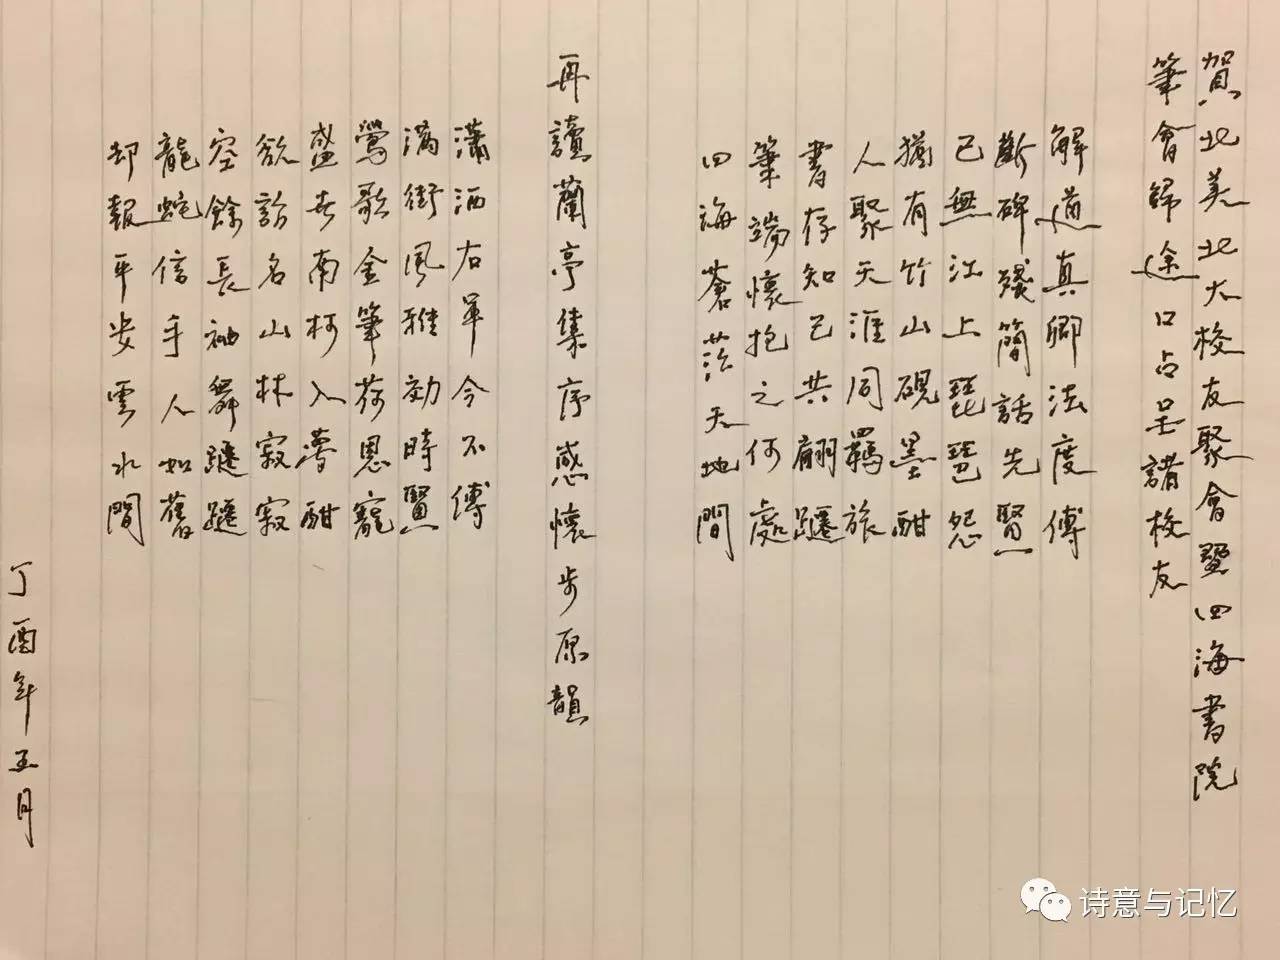 賀北美北大校友聚會暨四海書院
筆會歸途口占呈諸校友
解道真卿法度傳
斷碑殘簡話先賢
已無江上琵琶怨
猶有竹山硯墨酣
人聚天涯同羈旅
書存知己共翩躚
筆端懷抱之何處
四海蒼茫天地間
再讀蘭亭集序感懷步原韻
瀟洒右軍今不傳
滿街風雅効時賢
鶯歌金筆荷恩寵
盛世南柯入夢酣
欲訪名山林寂寂
空餘長袖舞躚躚
龍蛇信手人如舊
却報平安雲水間
丁酉年五月
诗意与记忆